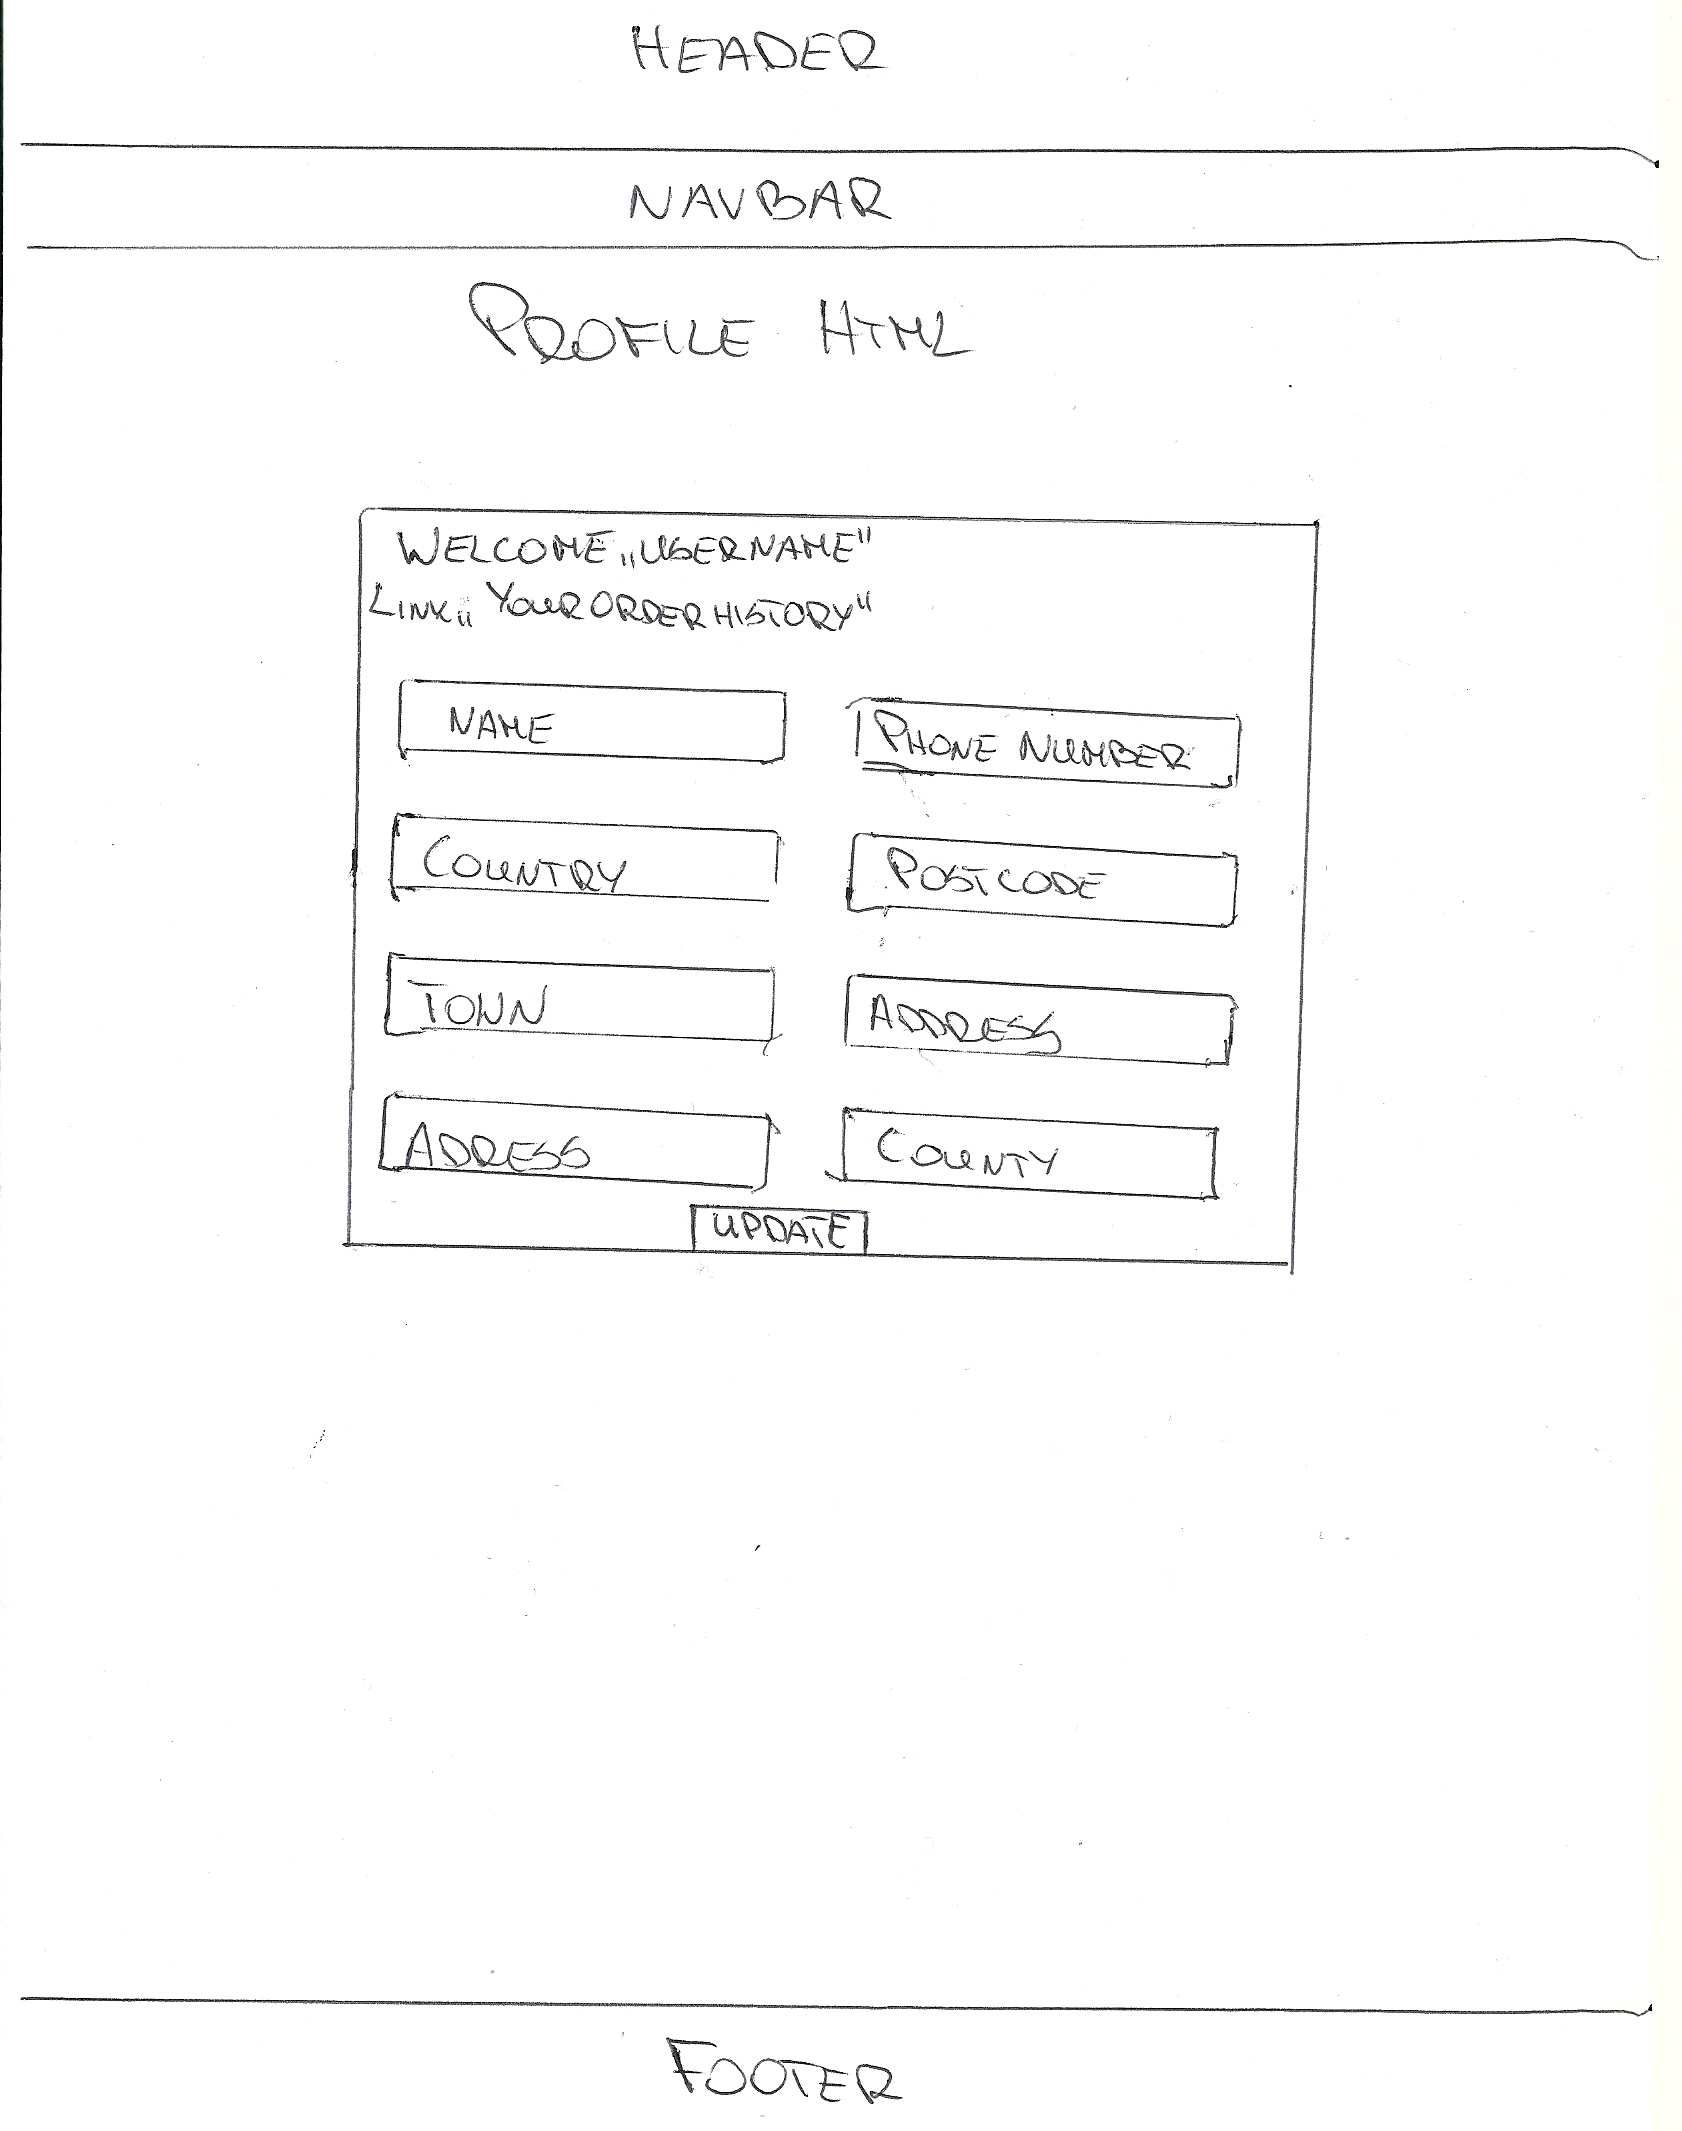 HEADER
NAVBAR
PROFILE HTML
WELCOME „USERNAME"
LINK „YOUR ORDER HISTORY"
NAME
PHONE NUMBER
COUNTRY
POSTCODE
TOWN
ADDRESS
ADRESS
COUNTY
UPDATE
FOOTER